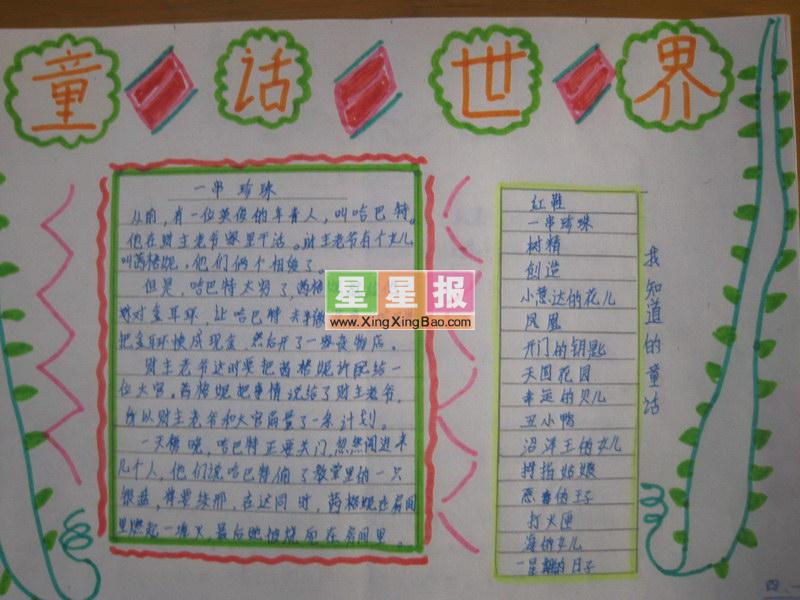 童话世界
一串珍珠
从前,有一位英俊的年青人,叫哈巴特。
他在财主老爷家里干活。财主老爷有个女儿
叫芮格妮,他们俩个相
但是,哈巴特太穷了,芮格
对金耳环,让哈巴特
把金耳环换成现金,然后开了一家衣物店。
财主老爷这时要把芮格妮许配给一
位大官。芮格妮把事情说给了财主老爷,
所以财主老爷和大官商量了一条计划。
一天傍晚,哈巴特正要关门,忽然闯进来
几个人,他们说哈巴特偷了教堂里的一只
银盏,在这同时,芮格妮在房间
里燃起一堆火,最后她把房间里。
星星报
www.XingXingBao.com
我知道的童话
红鞋
一串珍珠
树精
创造
小意达的花儿
凤凰
开门的钥匙
天国花园
幸运的贝儿
丑小鸭
沼泽王的女儿
拇指姑娘
恶毒的王子
打火匣
海的女儿
一星期的日子
四、一